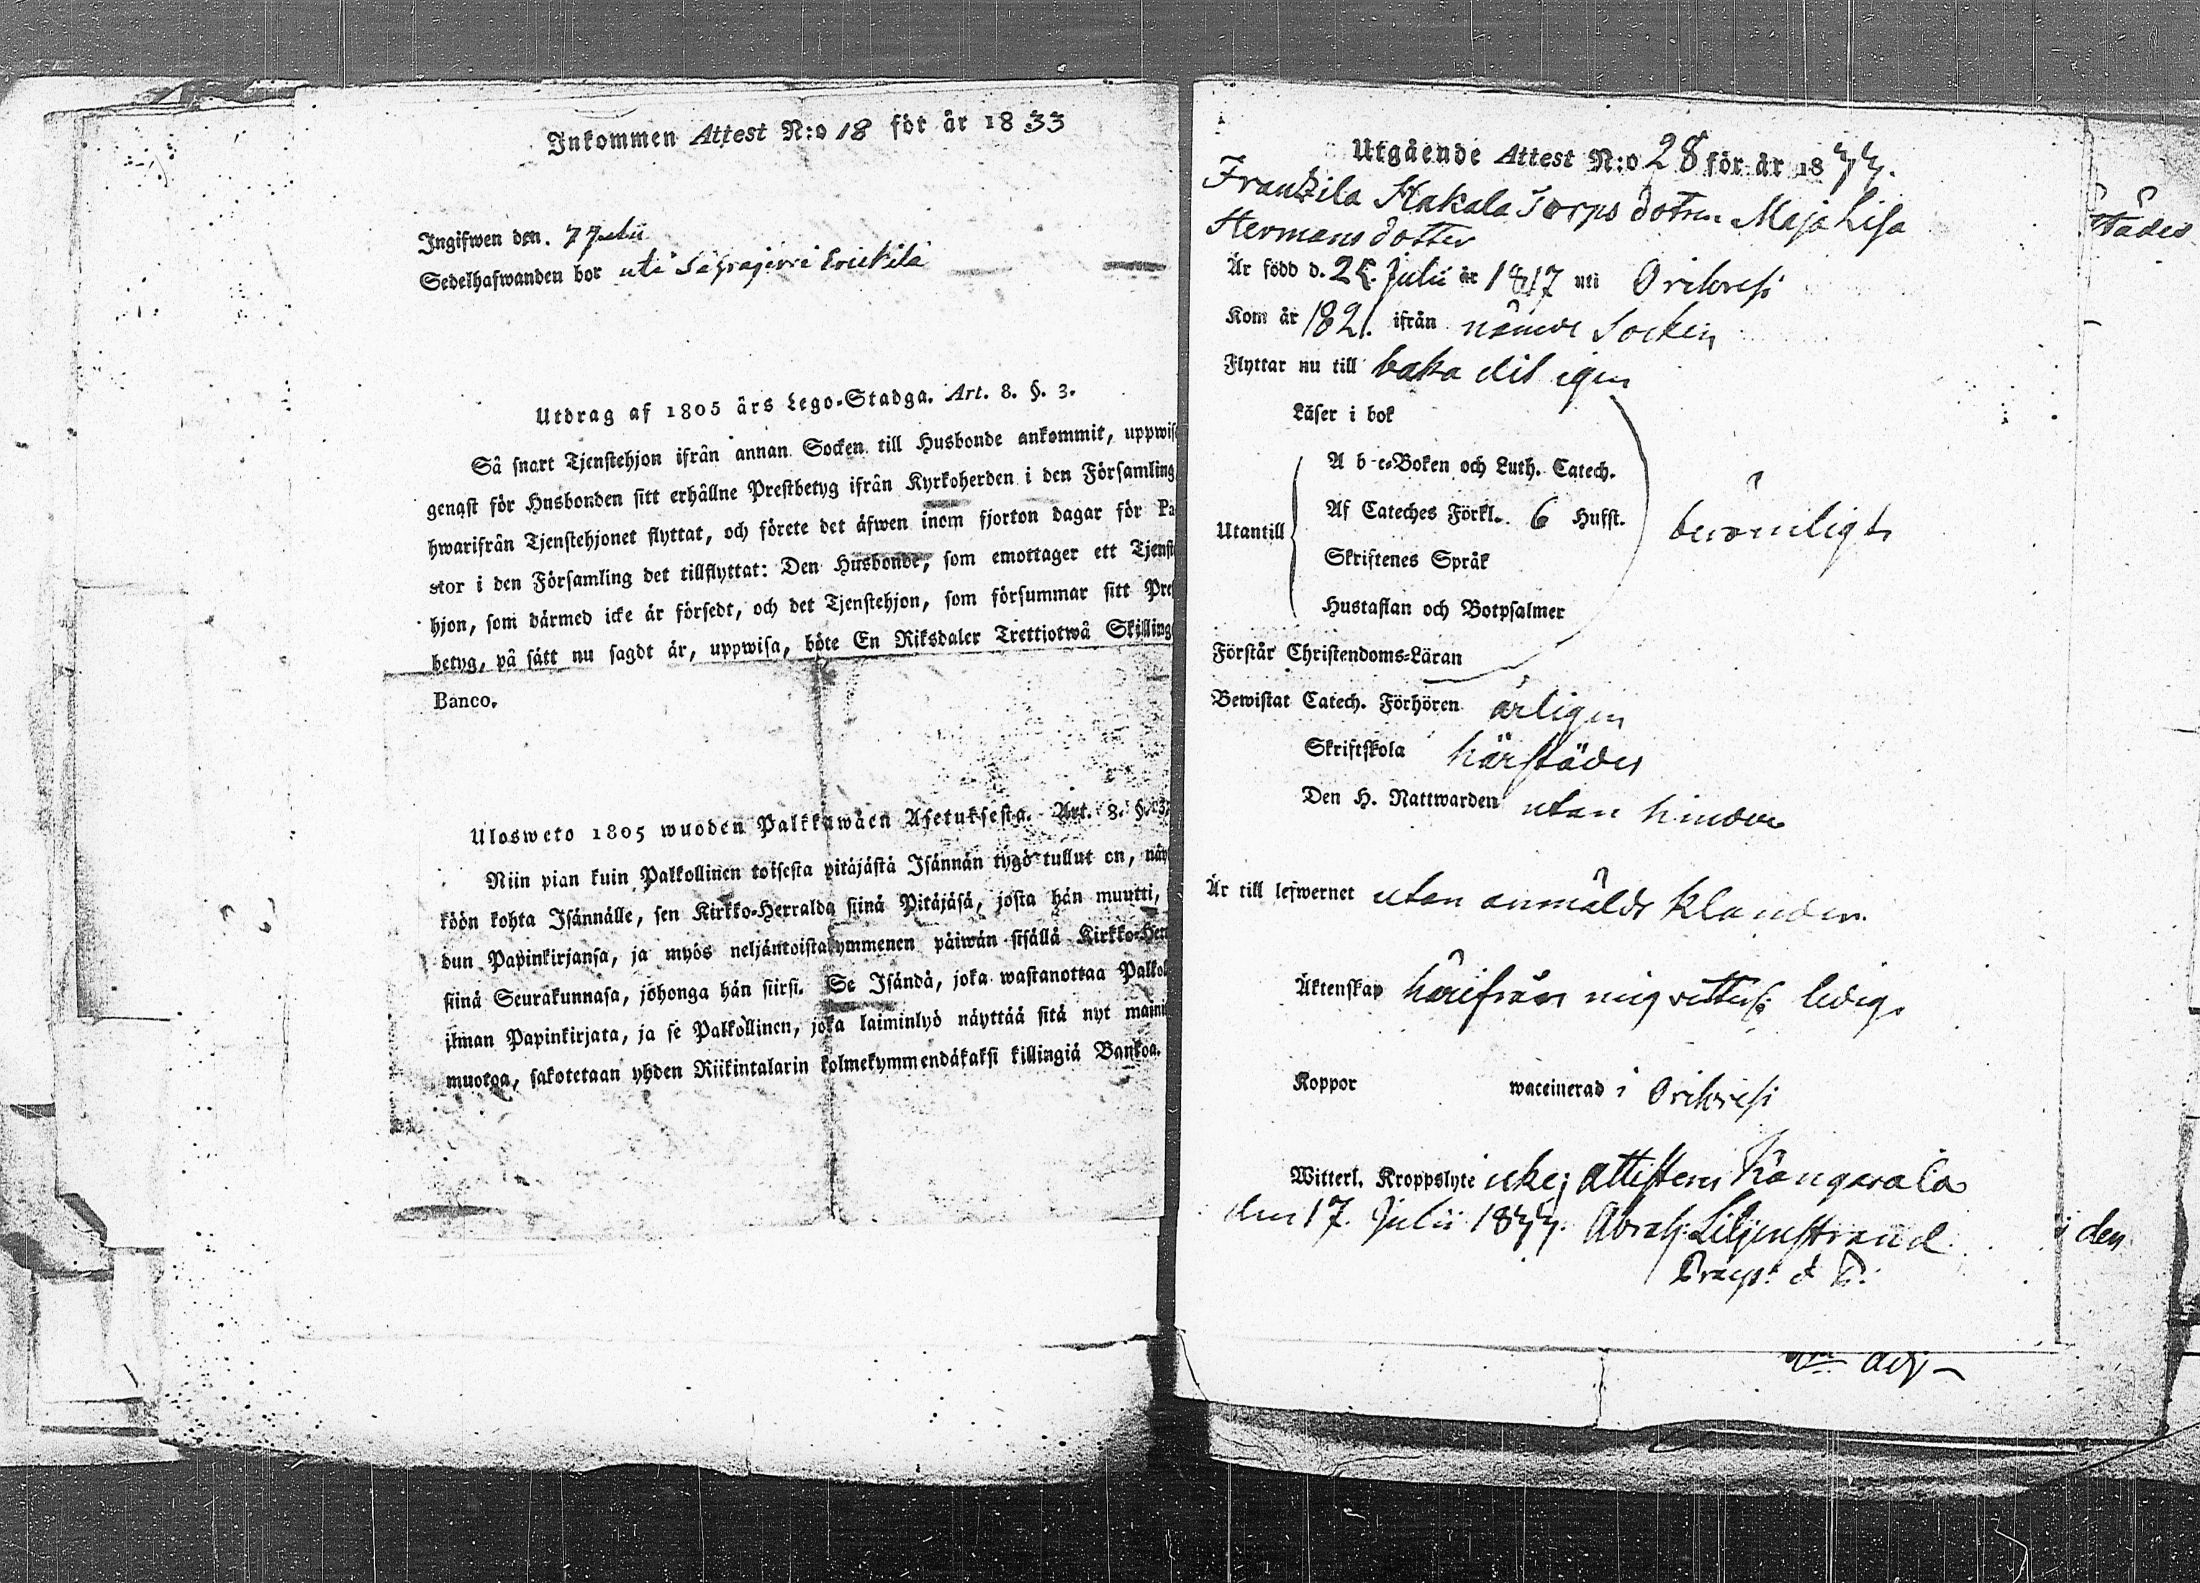 Inkommen Attest N:o 18 för år 1833
Ingifwen den. 7 Julii
Sedelhafwanden bor uti Sahrajerfvi Erickilä
Utdrag af 1805 års Lego-Stadga. Art. 8. §. 3.
Så snart Tjenstehjon ifrån annan Socken till Husbonde ankommit, uppwis
genast för Husbonden sitt erhållne Prestbetyg ifrån Kyrkoherden i den Församling
hwarifrån Tjenstehjonet flyttat, och förete det äfwen inom fjorton dagar för Pa
stor i den Församling det tillflyttat: Den Husbonde, som emottager ett Tjenst
hjon, som därmed icke är försedt, och det Tjenstehjon, som försummar sitt Pre
betyg, på sätt nu sagdt är, uppwisa, böte En Riksdaler Trettiotwå Skilling
Banco.
Ulosweto 1805 wuoden Palkkawäen Asetuksesta. Art. 8. §. 3.
Niin pian kuin Palkollinen toisesta pitäjästä Isännän tygö tullut on, näy
köön kohta Isännälle, sen Kirkko-Herralda siinä Pitäjäsä, josta hän muutti,
dun Papinkirjansa, ja myös neljäntoistakymmenen päiwän sisällä Kirkko-Her
siinä Seurakunnasa, johonga hän siirsi. Se Isändä, joka wastanottaa Palkol
ilman Papinkirjata, ja se Palkollinen, joka laiminlyö näyttää sitä nyt maini
muotoa, sakotetaan yhden Riikintalarin kolmekymmendäkaksi killingiä Bankoa.
Utgående Attest N:o 28 för år 1844.
Frantzila Kakala Torps dotren Maja Lisa
Hermans dotter
Är född d. 25 Julii år 1817 uti Orihvesi
Kom år 1821. ifrån nämde Socken
Flyttar nu till baka dit igen
Läser i bok
A b c-Boken och Luth. Catech.
Utantill Af Cateches Förkl. 6 Hufst. berömligt
Skriftenes Språk
Hustaflan och Botpsalmer
Förstår Christendoms-Läran
Bewistat Catech. Förhören årligen
Skriftskola härstädes
Den H. Nattwarden utan hinder
Är till lefwernet utan anmäldt klander.
Äktenskap härifrån mig vitterl: ledig.
Koppor waccinerad i Orihvesi
Witterl. Kroppslyte ickej attesteras Kangasala
den 17. Julii 1844. Abrah: Liljenstrand
städes
i den